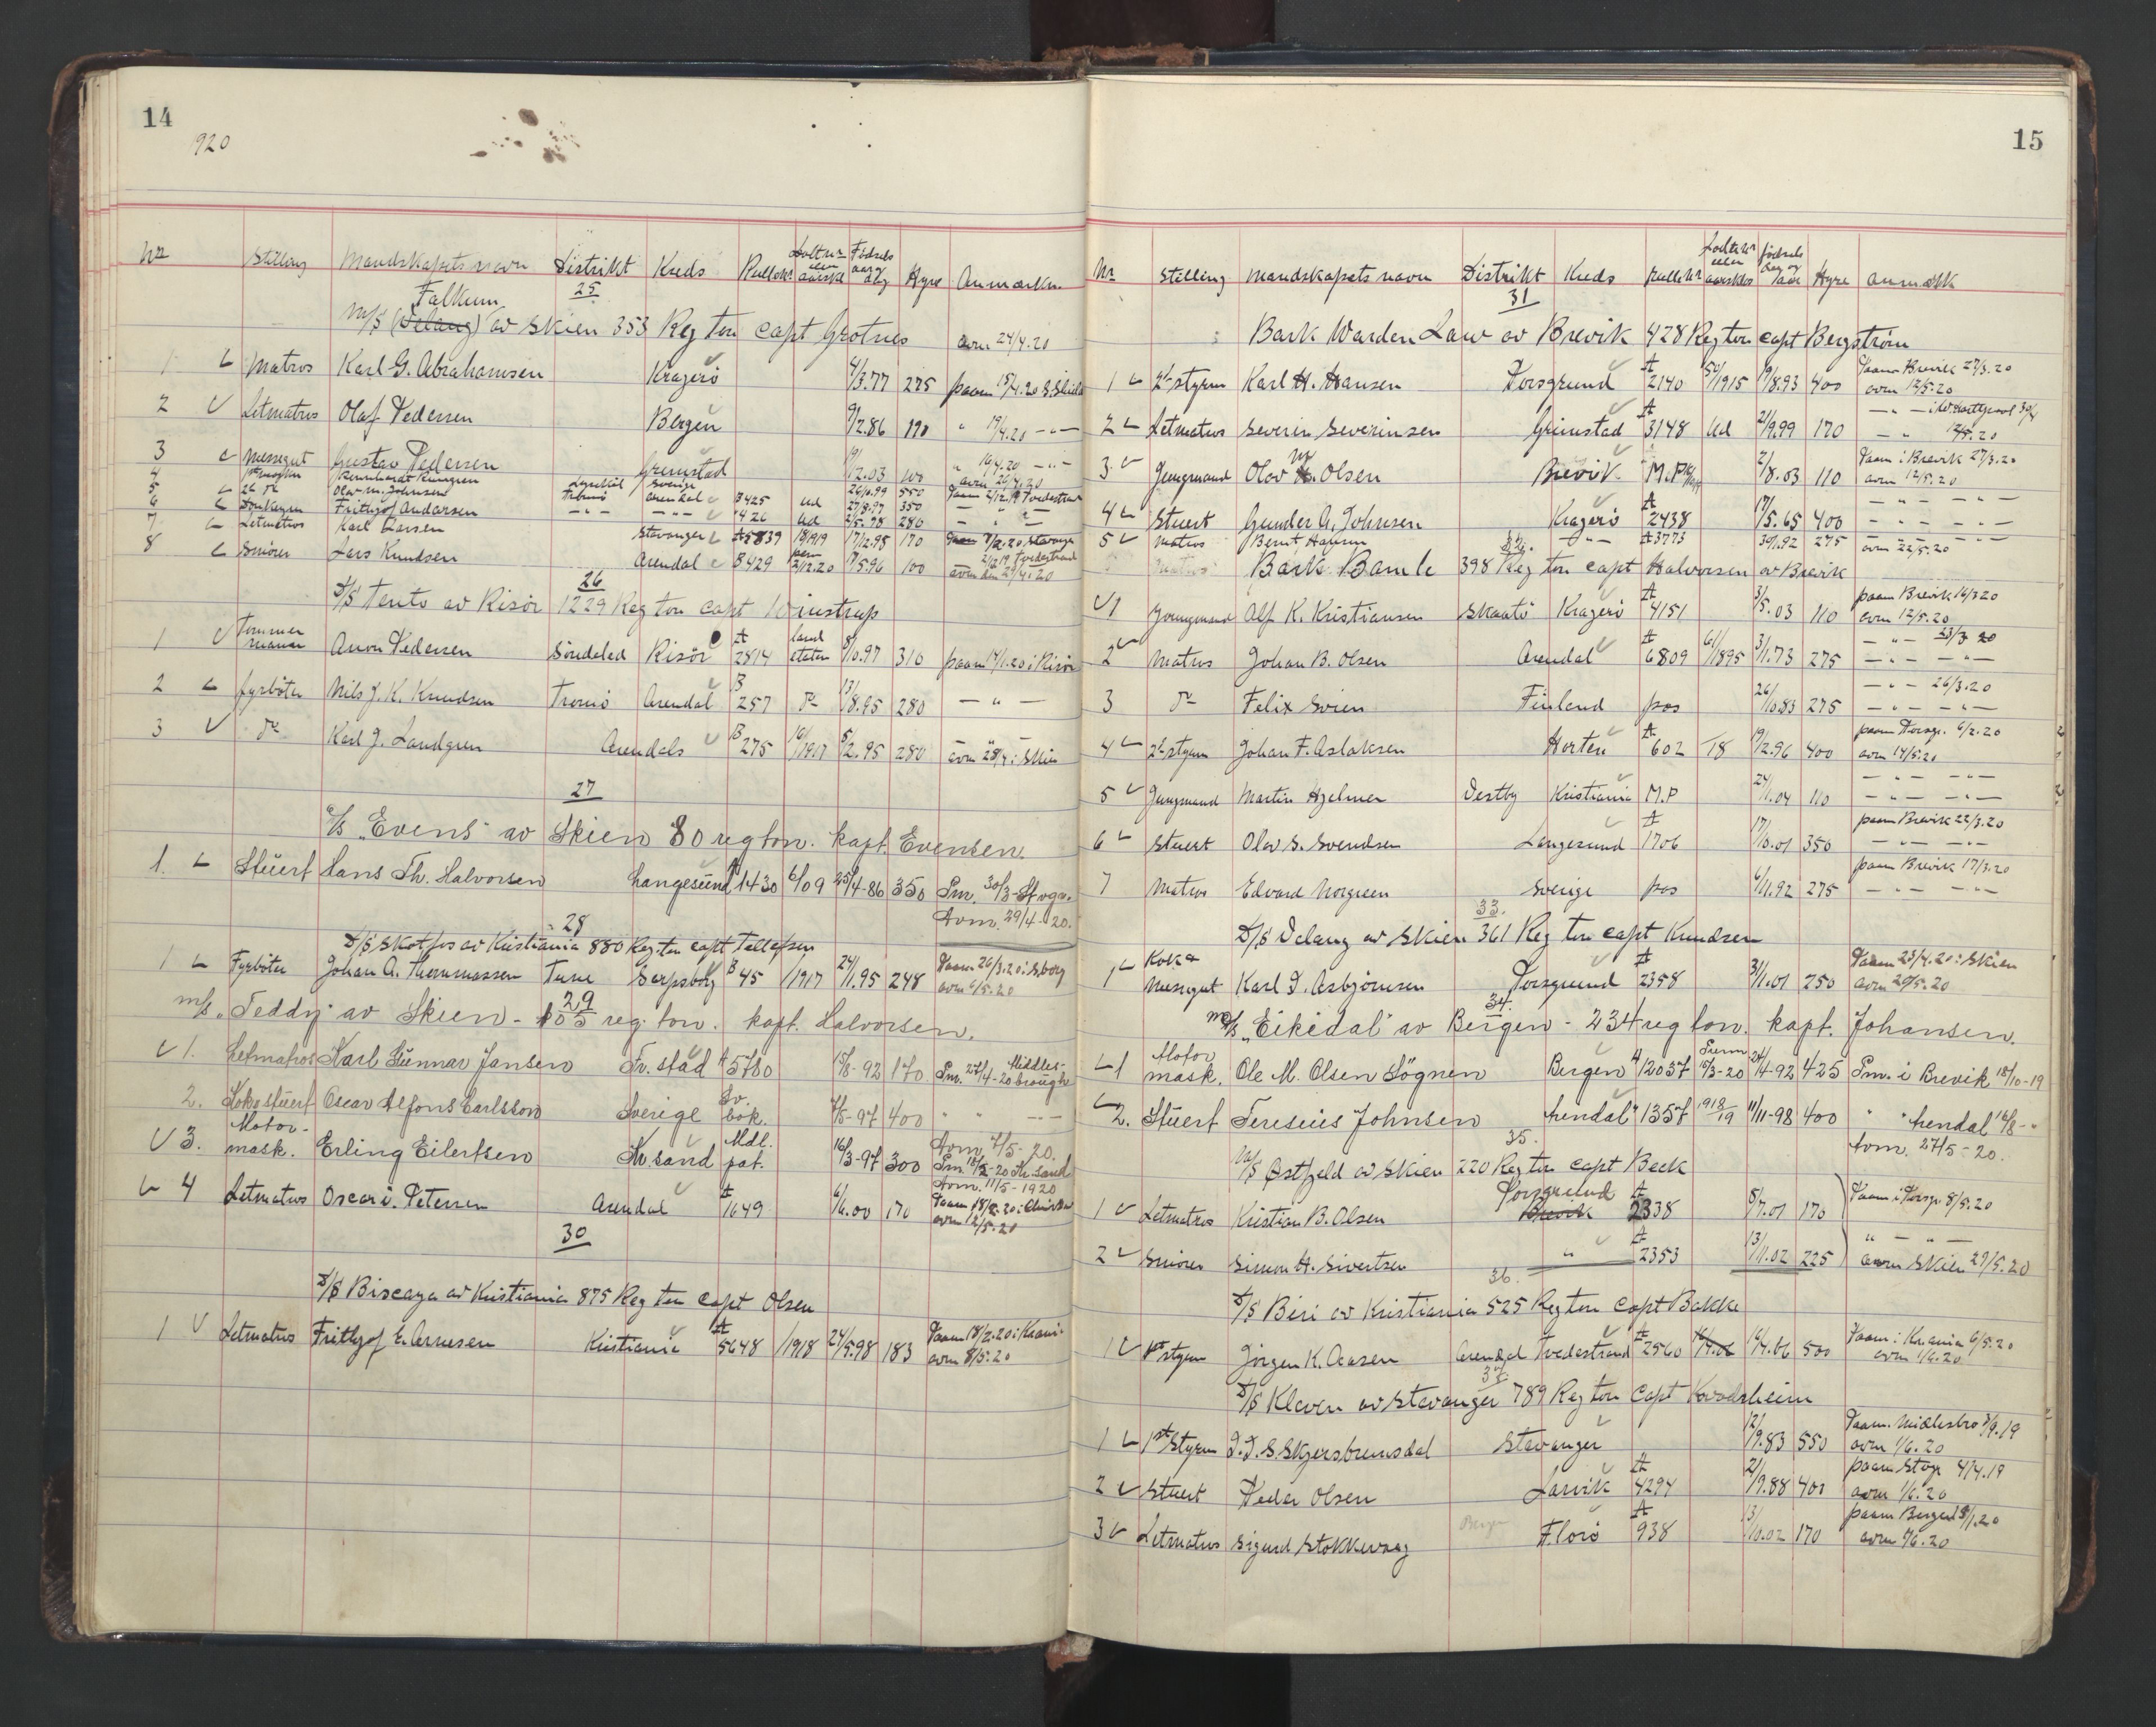 14
920
Nr Stilling Mandskapets navn Distrikt Kreds Rullenr Lodtnr eller aarskl Fødsels aar og dag Hyre Anmærkn.
25
Falkum
M/S (Delang) av Skien 353 Reg ton capt Grotnes avm 24/4.20
1 Matros Karl G. Abrahamsen Kragerö 4/3.77 275 paam 15/4.20
2 Letmatros Olaf Pedersen Bergen 9/2.86 190 " 19/4.20 — " —
3 Messegut Gustav Pedersen Grimstad 19/12.03 100 " 16/4.20 — " —
4 Lysekil Sverige 26/10.99 550 avm 26/4.20
5 2 do Olav M. Johnsen Tromö Arendal B 425 ud 27/8.97 350 Tvedestrand
6 Frithjof Andersen — " — — " — " 426 ud 2/5.78 280 — " —
7 Letmatros Karl Larsen Stavanger A 5839 18/1919 17/12.98 170 Stavanger
8 Smörer Lars Knudsen Arendal B 429 2/12.20 17/5.96 100 2/12.19 Tvedestrand avm den 24/4.20
26
D/S Tento av Risör 1229 Reg ton capt Winstrup
1 Tømmermann Anon Pedersen Söndeled Risör A 2814 land etaten 8/10.97 310 paam 14/1.20 i Risör
2 fyrböter Nils J. K. Knudsen Tromö Arendal B 257 do 13/8.95 280 — " —
3 do Karl J. Landgren Arendals B 275 16/1917 5/2.95 280 avm 28/4 i Skien
27
"Evens" av Skien 80 reg ton. kapt. Evensen.
1. Stuert Hans Th. Halvorsen Langesund A 1430 6/09 25/4-86 350 Pm. 30/3-Stvgr. Avm. 29/4-20.
28
D/S Skotfos av Kristiania 880 Reg ton capt Tellefsen
1 Fyrböter Johan A. Thommassen Tune Sarpsborg B 45 /1917 24/1.95 248 Paam 26/3.20 i Sborg avm 6/5.20
29
M/S "Teddy" av Skien - 105 reg. ton. kapt. Halvorsen.
1. Letmatros Karl Gunnar Jansen Fr. stad A 5780 15/8-92 170. Pm. 27/4-20 Middlesbrough
2. Kokostuert Oscar Alfons Carlsson Sverige Sv. bok. 4/8-97 400 " " — —
3. Motormask. Erling Eilertsen Kr. sand Mdl. pat. 16/3-97 300 Avm. 7/5-20. Kr. Sand Avm. 11/5-1920
4 Letmatros Oscar I. Petersen Arendal A 1649 6/6.00 170 avm 12/5.20
30
D/S Biscaya av Kristiania 875 Reg ton capt Olsen
1 Letmatros Frithjof E. Arnesen Kristiania A 5648 /1918 24/5.98 183 Paam 18/2.20 i Krania avm 8/5.20
15
Nr Stilling Mandskapets navn Distrikt Kreds Rullenr Lodtnr eller aarsklas fødsels dag og aar Hyre anmærk
31
Bark Warden Law av Brevik 428 Reg ton capt Bergström
1 2 styrm Karl H. Hansen Porsgrund A 2140 50/1915 19/8.93 400 Paam Brevik 27/3.20 avm 12/5.20
2 Letmatros Severin Severinsen Grimstad A 3148 Ud 21/9.99 170 — " — 12/5.20
3. Jungmand Olav M. Olsen Brevik M.P 2/8.03 110 Paam i Brevik 27/3.20 avm 12/5.20
4 Stuert Gunder A. Johnsen Kragerö A 2438 17/5.65 400 — " — — " —
5 Matros Bernt Hansen — " — A 3773 30/1.92 275 avm 22/5.20
32.
Bark Bamle 398 Reg ton capt Halvorsen av Brevik
1 Jungmand Alf K. Kristiansen Skaatö Kragerö A 4151 3/5.03 110 paam Brevik 16/3.20 avm 12/5.20
2 Matros Johan B. Olsen Arendal A 6809 61/1895 3/1.73 275 — " — 23/3 20
3 do Felix Svien Finland pas 26/10.83 275 — " — 26/3.20
4 2 styrm Johan F. Aslaksen Horten A 602 18 19/2.96 400 paam Porsgr. 6/2.20 avm 14/5.20
5 Jungmand Martin Hjelmer Vestby Kristiania M.P 24/1.04 110 — " — — " —
6 Stuert Olav S. Svendsen Langesund A 1706 17/10.01 350 paam Brevik 22/3.20
7 Matros Edvard Norgreen Sverige pas 6/11.92 275 paam Brevik 17/3.20
33.
D/S Delang av Skien 361 Reg ton capt Knudsen
1 Kok & Messegut Karl I. Asbjörnsen Porsgrund A 2358 31/1.01 250 Paam 23/4.20 i Skien avm 20/5.20
34.
"Eikedal" av Bergen - 234 reg ton. kapt. Johansen.
1 Motormask. Ole M. Olsen Sögnen Bergen A 12037 Perm 15/3-20 24/4-92 425 Pm. i Brevik 18/10-19
2. Stuert Tereseus Johnsen Arendal A 1357 1918/19 11/11-98 400 " " Arendal 16/8- " Avm. 27/5-20.
35.
M/S Østfjeld av Skien 220 Reg ton capt Beck
1 Letmatros Kristian B. Olsen Porsgrund Brevik A 2338 8/7.01 170 Paam i Porsgr. 8/5.20
2 Smörer Simon H. Sivertsen " A 2353 13/11.02 225 avm Skien 29/5.20
36.
D/S Biri av Kristiania 525 Reg ton Capt Bakke
1 1st styrm Jörgen K. Aasen Arendal Tvedestrand A 2560 16/4.66 500 Paam i Krania 6/5.20 avm 1/6.20
37.
D/S Kleven av Stavanger 789 Reg ton Capt Kvadsheim
1 1st Styrm I. I. S. Skjersbrunsdal Stavanger 12/9.83 550 Paam. Midlesbro 3/9.19 avm 1/6.20
2 Stuert Peder Olsen Larvik A 4294 21/9.88 400 paam Stvgr 4/4.19 avm 1/6.20
3 Letmatros Sigurd Stokkevaag Bergen Florö A 938 13/10.02 170 paam Bergen avm 1/6.20